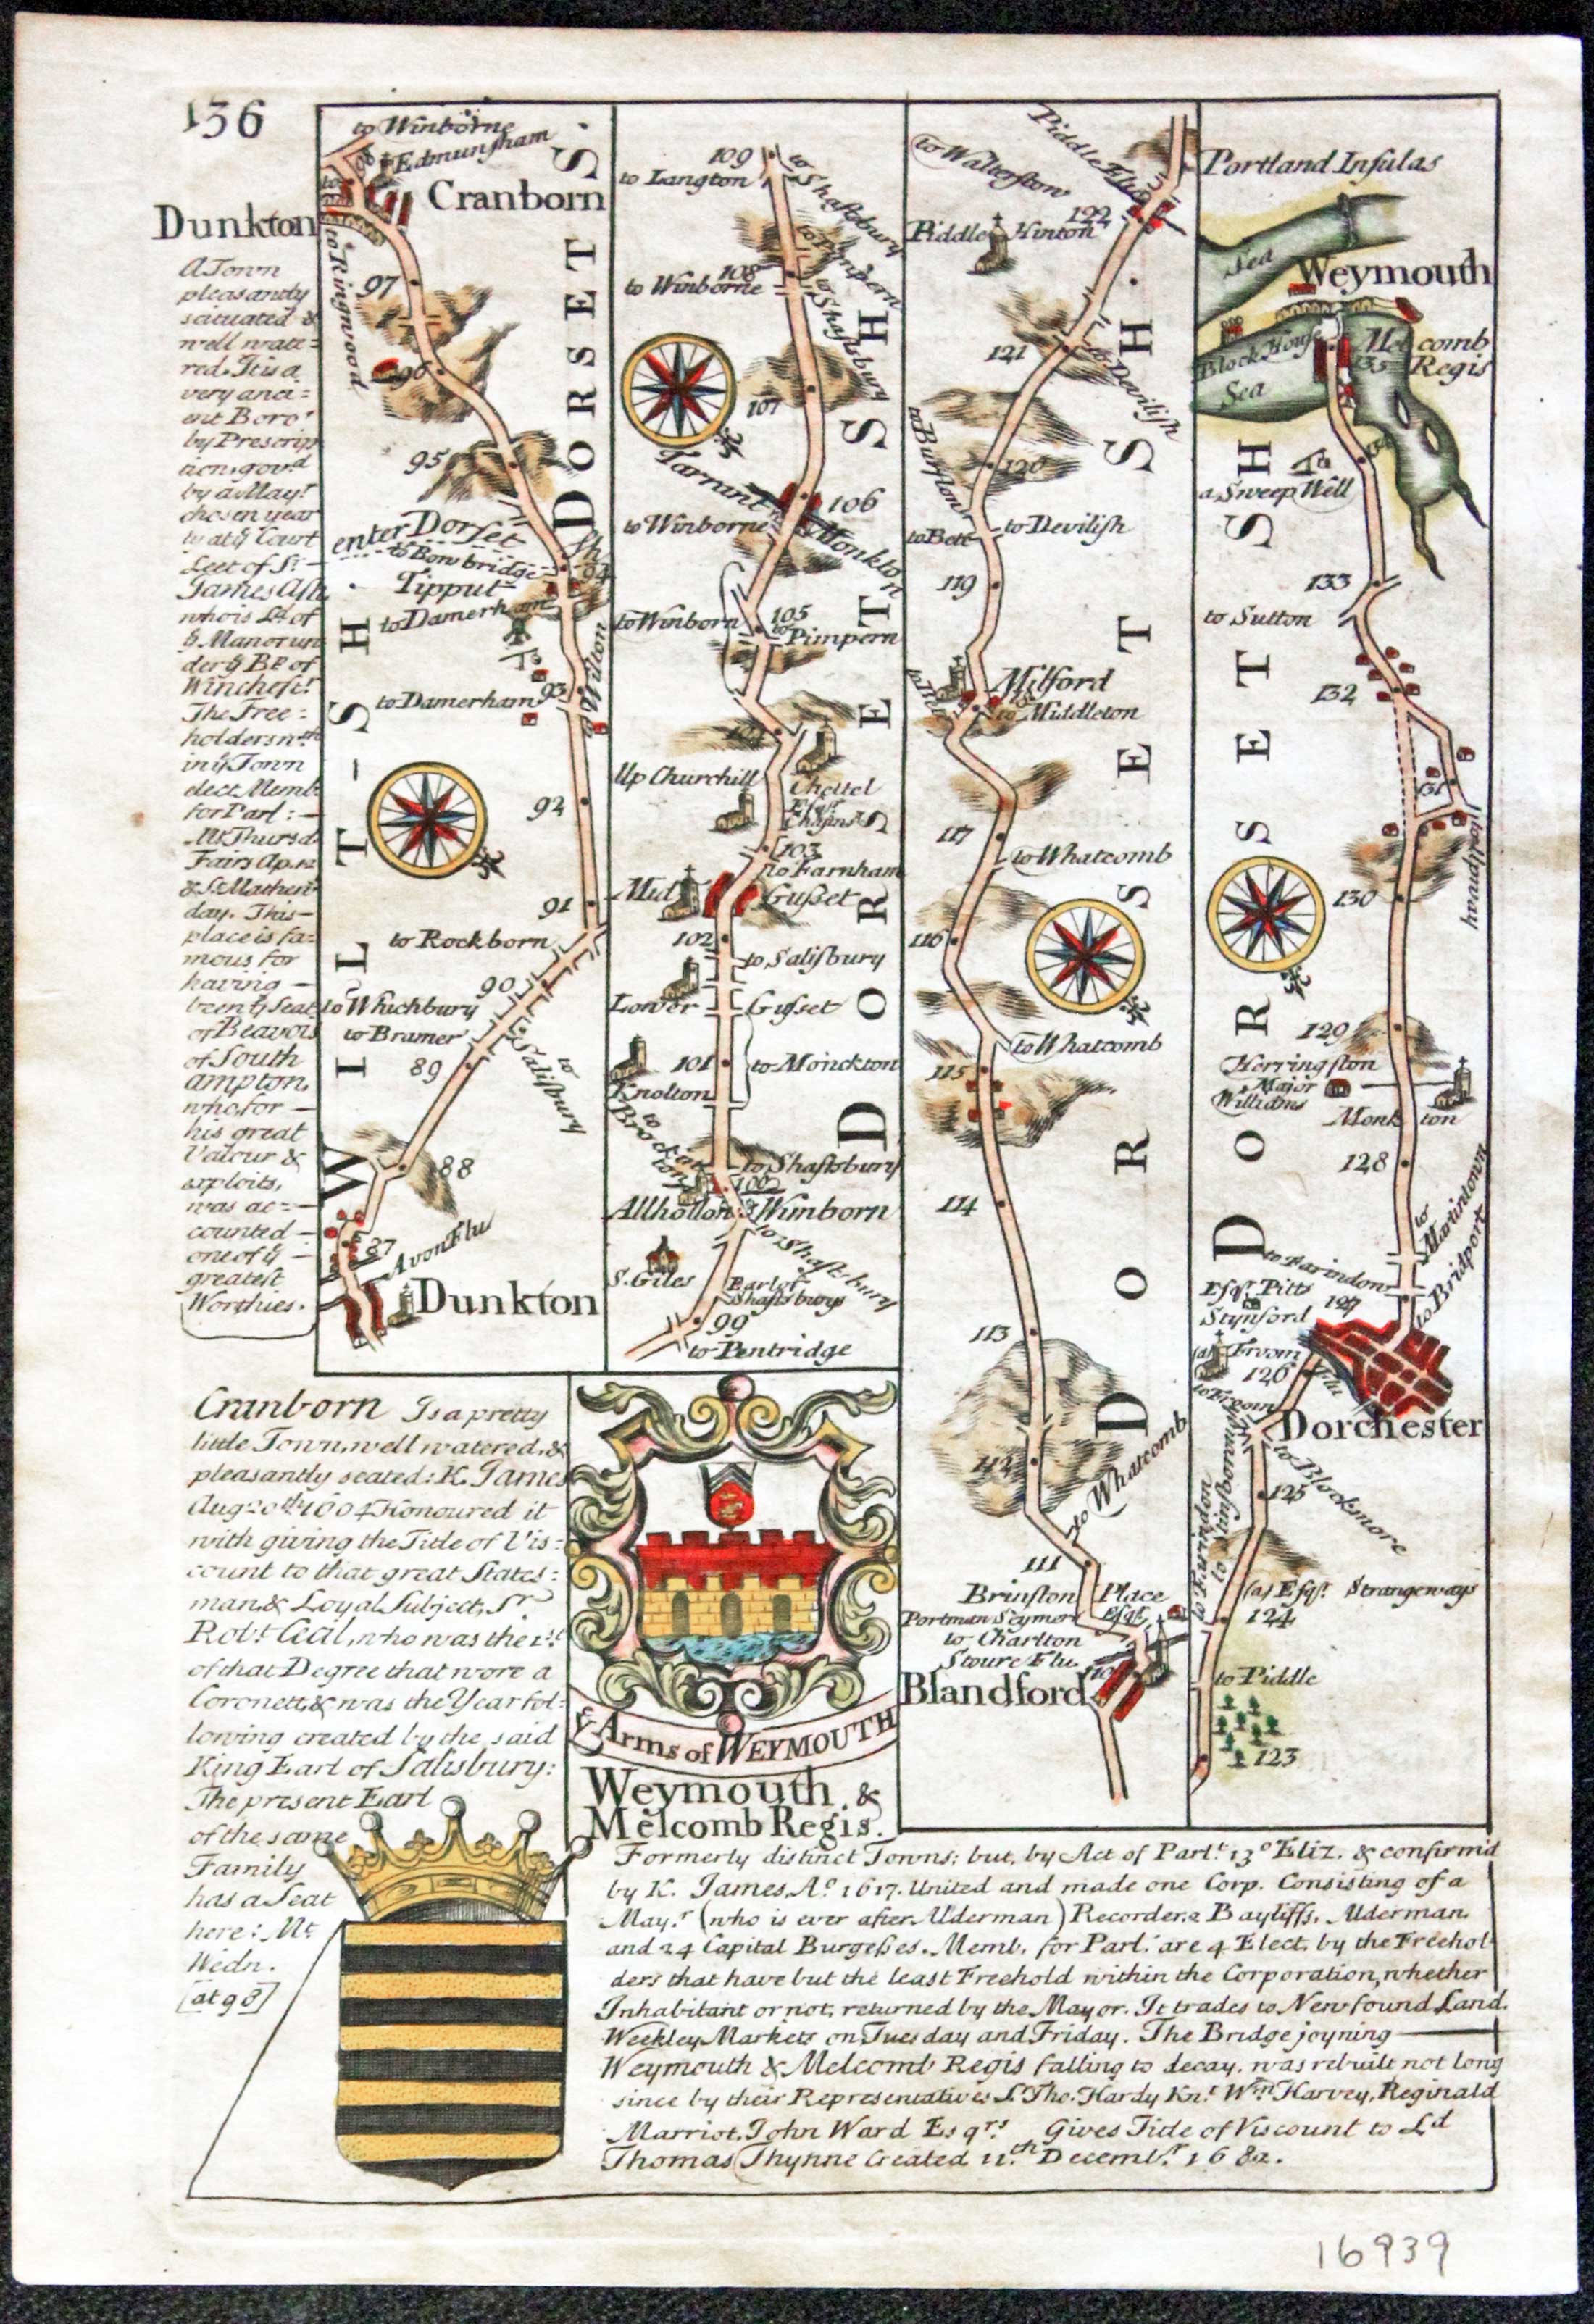 136
Dunkton
A Town
pleasantly
scituated &
well wate=
red. It is a
very anci=
ent Boro'
by Prescrip
tion, gov'd
by a May.r
chosen year
ly at ye Court
Leet of Sr
James Ash
who is Ld. of
ye Manor un
der ye Bp of
Winchest.r
The Free=
holders wth
in ye Town
elect Memb
for Parl:
Mt. Thursd.
Fairs Ap. 12
& St. Mathew
day. This
place is fa=
mous for
having
been ye Seat
of Beavois
of South
ampton,
who, for
his great
Valour &
exploits,
was ac=
counted
one of ye
greatest
Worthies.
to Winborne
Edmunsham
Cranborn
to Ringwood
97
96
95
enter Dorset Sh.
to Bow bridge
94
Tipput
to Damerham
to Wilton
to Damerham
93
92
91
to Rockborn
90
to Whichbury
to Bramer
89
to Salisbury
88
87
Avon Flu
Dunkton
WILT-SH.
DORSETS.
109
to Langton
to Shaftsbury
to Pimpern
108
to Winborne
to Shaftsbury
107
Tarrant
106
to Winborne
Monkton
105
to Winborn
to Pimpern
Up Churchill
Chettel
Esqr.
103
to Farnham
Mid
Gusset
102
to Salisbury
Lower
Gusset
101
to Monckton
Knolton
to Brockin
ton
to Shaftsbury
100
Allhollon
Wimborn
to Shaftsbury
S. Giles
Earl of
Shaftsbury
99
to Pentridge
DORSETSH
Piddle Flu
to Walterston
122
Piddle Hinton
121
to Devilish
120
to Burston
to Devilish
to Bere
119
Milford
to Middleton
117
to Whatcomb
116
to Whatcomb
115
114
113
112
to Whatcomb
111
Brinston Place
Portman Seymor Esqr.
to Charlton
Stoure Flu.
110
Blandford
DORSETSH.
Portland Insulas
Sea
Weymouth
Block House
Melcomb
Regis
135
Sea
134
a Sweep Well
133
to Sutton
132
131
Broadway
130
129
Herringston
Major
Williams
Monkton
128
to Martintown
to Bridport
to Farindon
127
Esqr. Pitts
Stynsford
(a) Froom
Flu
126
to Froom
Dorchester
to Blocksmore
125
to Farindon
(a) Esqr. Strangeways
124
to Piddle
123
DORSETSH
Cranborn Is a pretty
little Town, well watered, &
pleasantly seated: K. James
Aug: 20th 1604 Honoured it
with giving the Title of Vis=
count to that great States=
man & Loyal Subject, Sr
Robt. Cecil, who was the 1st
of that Degree that wore a
Coronett, & was the Year fol=
lowing created by the said
King Earl of Salisbury:
The present Earl
of the same
Family
has a Seat
here: Mt.
Wedn.
at 98
ye Arms of WEYMOUTH
Weymouth &
Melcomb Regis.
Formerly distinct Towns; but, by Act of Parlt. 13o Eliz. & confirm'd
by K. James, Ao 1617. United and made one Corp. Consisting of a
May.r (who is ever after Alderman) Recorder, 2 Bayliffs, Alderman,
and 24 Capital Burgesses. Memb. for Parl: are 4 Elect. by the Freehol
ders that have but the least Freehold within the Corporation, whether
Inhabitant or not, returned by the Mayor. It trades to New found Land.
Weekley Markets on Tuesday and Friday. The Bridge joyning
Weymouth & Melcomb Regis falling to decay, was rebuilt not long
since by their Representatives Sr Tho. Hardy Knt. Wm. Harvey, Reginald
Marriot, John Ward Esqrs. Gives Title of Viscount to Ld
Thomas Thynne Created 11th. Decembr. 1682.
16939